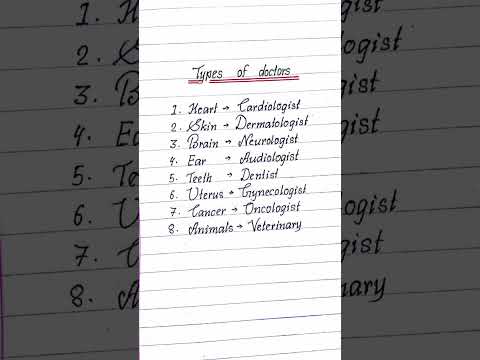 Types of doctors
1. Heart → Cardiologist
2. Skin → Dermatologist
3. Brain → Neurologist
4. Ear → Audiologist
5. Teeth → Dentist
6. Uterus → Gynecologist
7. Cancer → Oncologist
8. Animals → Veterinary